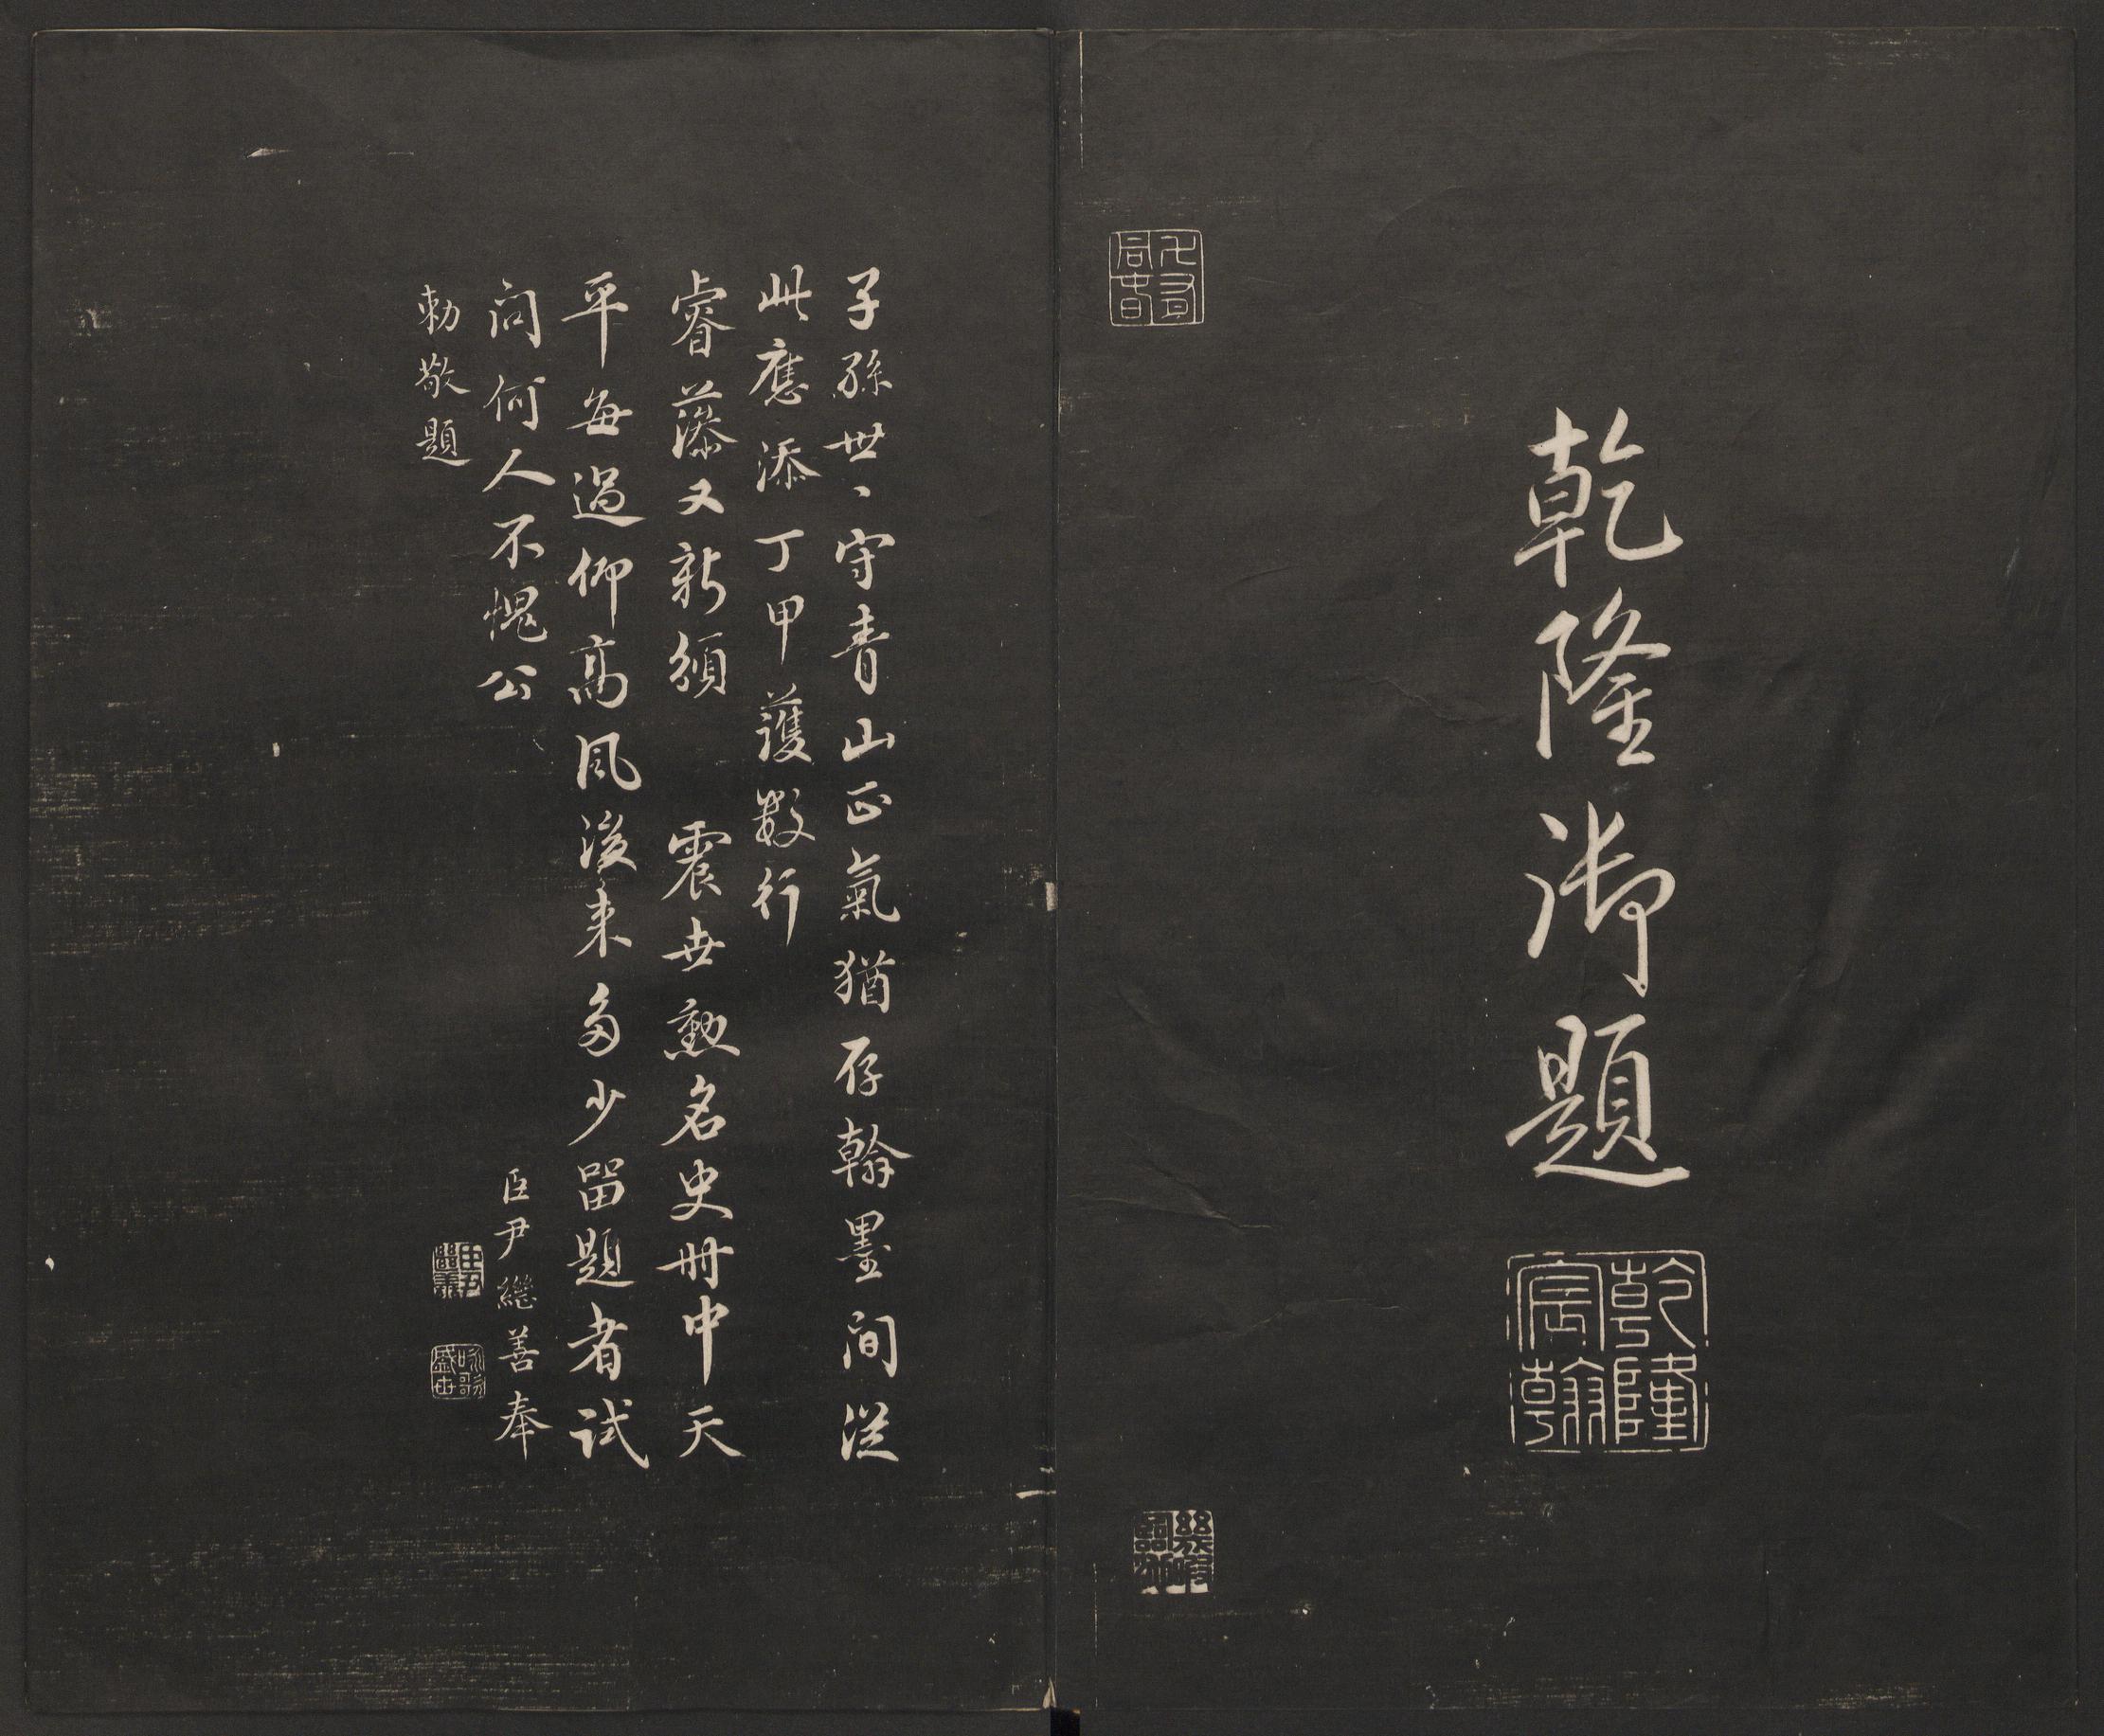 乾隆御題
乾隆
宸翰
子孫世〻守青山正氣猶存翰墨間從
此應添丁甲護數行
睿藻又新頒　震世勲名史冊中天
平每過仰高風後来多少畱題者試
問何人不愧公
臣尹繼善奉
勅敬題